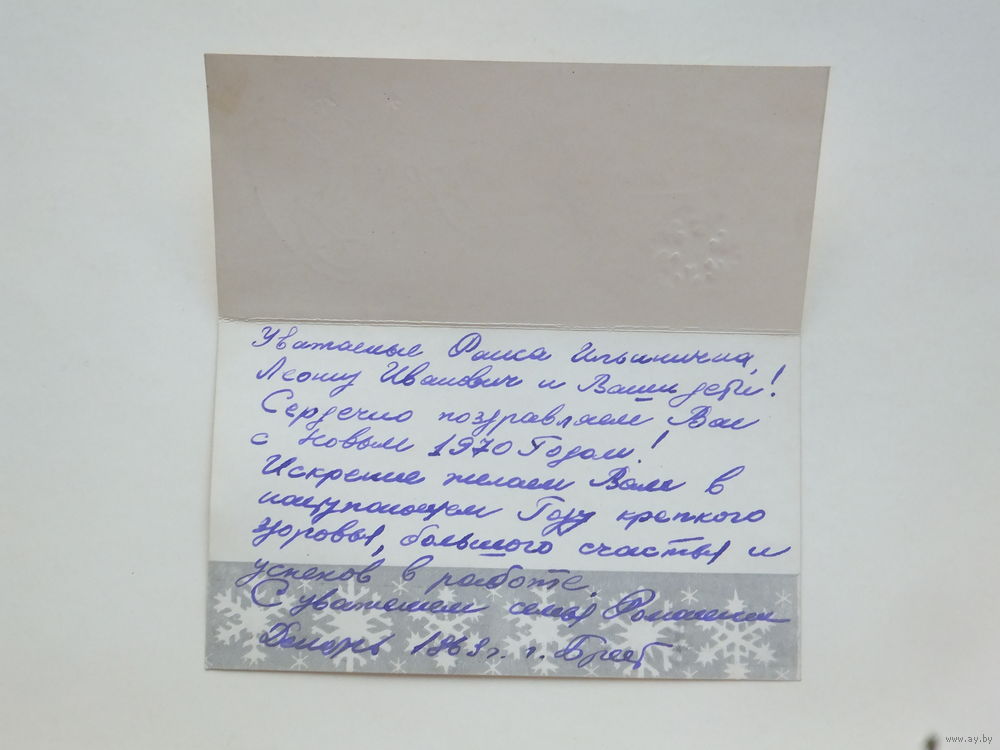 Уважаемые Раиса Ильинична,
Леонид Иванович и Ваши дети!
Сердечно поздравляем Вас
с Новым 1970 Годом!
Искренне желаем Вам в
наступающем Году крепкого
здоровья, большого счастья и
успехов в работе.
С уважением семья
Декабрь 1969 г. г. Брест
www.ay.by